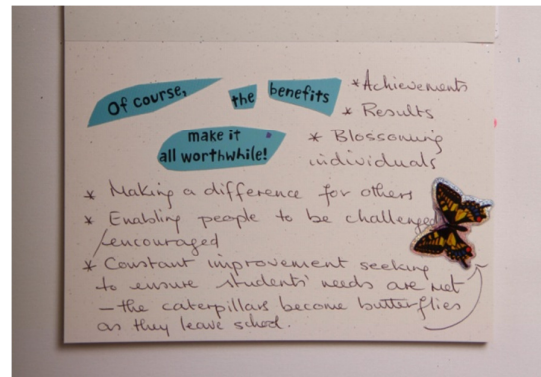 Of course,
the
benefits
make it
all worthwhile!
* Achievements
* Results
* Blossoming
individuals
* Making a difference for others
* Enabling people to be challenged
/encouraged
* Constant improvement seeking
to ensure students' needs are met
– the caterpillars become butterflies
as they leave school.